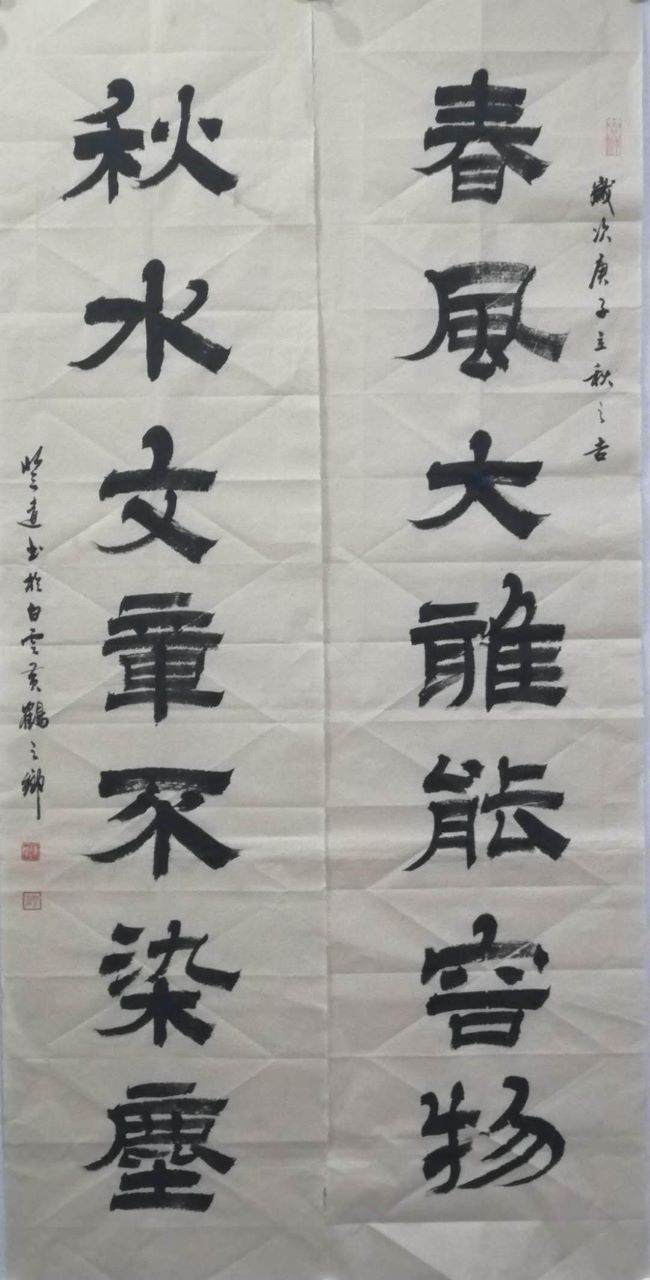 歲次庚子立秋之吉
春風大雅能容物
秋水文章不染塵
書於白雲黃鶴之鄉